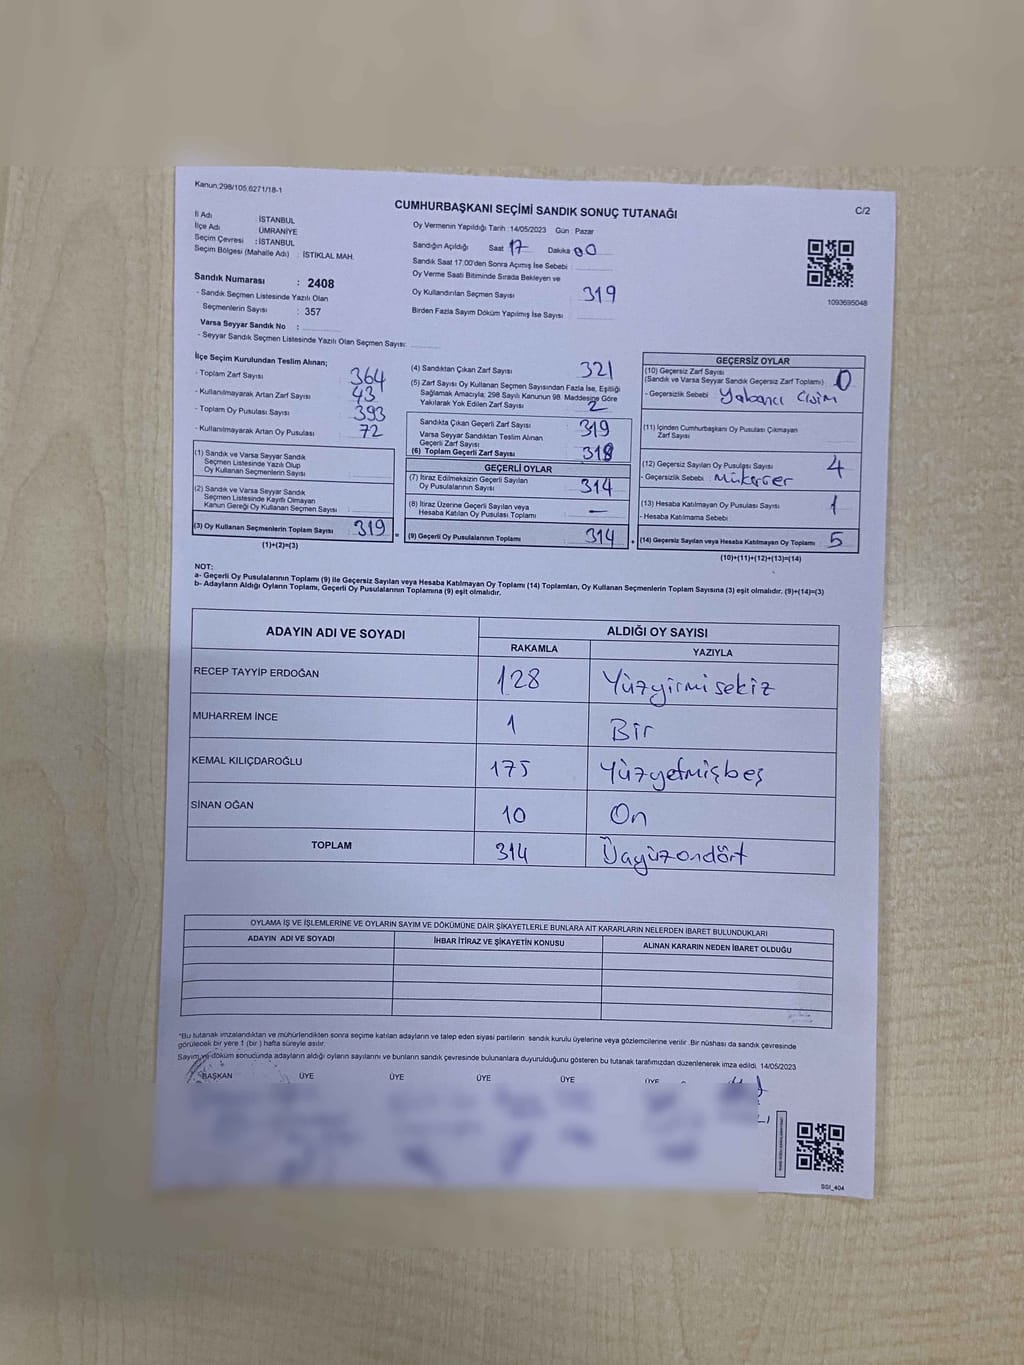 Kanun:298/105,6271/18-1
C/2
CUMHURBAŞKANI SEÇİMİ SANDIK SONUÇ TUTANAĞI
İl Adı : İSTANBUL
İlçe Adı : ÜMRANİYE
Seçim Çevresi : İSTANBUL
Seçim Bölgesi (Mahalle Adı) : İSTİKLAL MAH.
Sandık Numarası : 2408
- Sandık Seçmen Listesinde Yazılı Olan
Seçmenlerin Sayısı : 357
Varsa Seyyar Sandık No :
- Seyyar Sandık Seçmen Listesinde Yazılı Olan Seçmen Sayısı:
Oy Vermenin Yapıldığı Tarih :14/05/2023 Gün : Pazar
Sandığın Açıldığı Saat 17 Dakika 00
Sandık Saat 17:00'den Sonra Açımış İse Sebebi :
Oy Verme Saati Bitiminde Sırada Bekleyen ve
Oy Kullandırılan Seçmen Sayısı 319
Birden Fazla Sayım Döküm Yapılmış İse Sayısı :
1093695048
İlçe Seçim Kurulundan Teslim Alınan;
- Toplam Zarf Sayısı : 364
- Kullanılmayarak Artan Zarf Sayısı : 43
- Toplam Oy Pusulası Sayısı : 393
- Kullanılmayarak Artan Oy Pusulası : 72
(1) Sandık ve Varsa Seyyar Sandık
Seçmen Listesinde Yazılı Olup
Oy Kullanan Seçmenlerin Sayısı :
(2) Sandık ve Varsa Seyyar Sandık
Seçmen Listesinde Kayıtlı Olmayan
Kanun Gereği Oy Kullanan Seçmen Sayısı :
(3) Oy Kullanan Seçmenlerin Toplam Sayısı : 319
(1)+(2)=(3)
(4) Sandıktan Çıkan Zarf Sayısı : 321
(5) Zarf Sayısı Oy Kullanan Seçmen Sayısından Fazla İse, Eşitliği
Sağlamak Amacıyla; 298 Sayılı Kanunun 98. Maddesine Göre
Yakılarak Yok Edilen Zarf Sayısı : 2
Sandıkta Çıkan Geçerli Zarf Sayısı : 319
Varsa Seyyar Sandıktan Teslim Alınan
Geçerli Zarf Sayısı :
(6) Toplam Geçerli Zarf Sayısı : 319
GEÇERLİ OYLAR
(7) İtiraz Edilmeksizin Geçerli Sayılan
Oy Pusulalarının Sayısı : 314
(8) İtiraz Üzerine Geçerli Sayılan veya
Hesaba Katılan Oy Pusulası Toplamı : —
(9) Geçerli Oy Pusulalarının Toplamı : 314
GEÇERSİZ OYLAR
(10) Geçersiz Zarf Sayısı
(Sandık ve Varsa Seyyar Sandık Geçersiz Zarf Toplamı) : 0
- Geçersizlik Sebebi : Yabancı Cisim
(11) İçinden Cumhurbaşkanı Oy Pusulası Çıkmayan
Zarf Sayısı :
(12) Geçersiz Sayılan Oy Pusulası Sayısı : 4
- Geçersizlik Sebebi : Mükerrer
(13) Hesaba Katılmayan Oy Pusulası Sayısı : 1
- Hesaba Katılmama Sebebi :
(14) Geçersiz Sayılan veya Hesaba Katılmayan Oy Toplamı : 5
(10)+(11)+(12)+(13)=(14)
NOT:
a- Geçerli Oy Pusulalarının Toplamı (9) ile Geçersiz Sayılan veya Hesaba Katılmayan Oy Toplamı (14) Toplamları, Oy Kullanan Seçmenlerin Toplam Sayısına (3) eşit olmalıdır. (9)+(14)=(3)
b- Adayların Aldığı Oyların Toplamı, Geçerli Oy Pusulalarının Toplamına (9) eşit olmalıdır.
ADAYIN ADI VE SOYADI
ALDIĞI OY SAYISI
RAKAMLA YAZIYLA
RECEP TAYYİP ERDOĞAN 128 Yüzyirmisekiz
MUHARREM İNCE 1 Bir
KEMAL KILIÇDAROĞLU 175 Yüzyetmişbeş
SİNAN OĞAN 10 On
TOPLAM 314 Üçyüzondört
OYLAMA İŞ VE İŞLEMLERİNE VE OYLARIN SAYIM VE DÖKÜMÜNE DAİR ŞİKAYETLERLE BUNLARA AİT KARARLARIN NELERDEN İBARET BULUNDUKLARI
ADAYIN ADI VE SOYADI İHBAR İTİRAZ VE ŞİKAYETİN KONUSU ALINAN KARARIN NEDEN İBARET OLDUĞU
*Bu tutanak imzalandıktan ve mühürlendikten sonra seçime katılan adayların ve talep eden siyasi partilerin sandık kurulu üyelerine veya gözlemcilerine verilir. Bir nüshası da sandık çevresinde
görülecek bir yere 1 (bir) hafta süreyle asılır.
Sayım ve döküm sonucunda adayların aldığı oyların sayılarını ve bunların sandık çevresinde bulunanlara duyurulduğunu gösteren bu tutanak tarafımızdan düzenlenerek imza edildi. 14/05/2023
BAŞKAN ÜYE ÜYE ÜYE ÜYE ÜYE
SSI_404